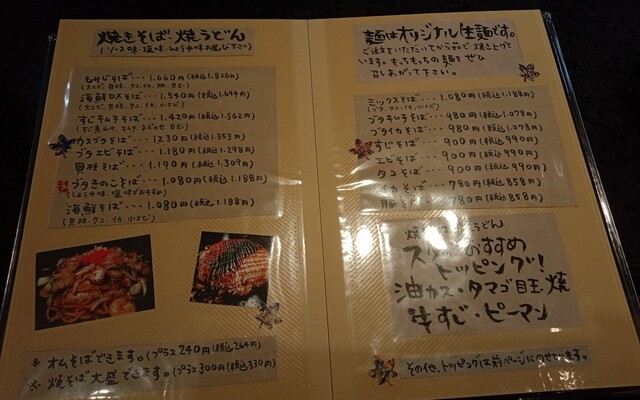 焼きそば・焼うどん
(ソース味・塩味・しょうゆ味お選び下さい)
もみじそば・・・1,660円(税込1,826円)
海鮮DXそば・・・1,540円(税込1,694円)
すじキムチそば・・・1,420円(税込1,562円)
カスブタそば・・・1230円(税込1,353円)
ブタエビそば・・・1,180円(税込1,298円)
貝柱そば・・・1,190円(税込1,309円)
ブタきのこそば・・・1,080円(税込1,188円)
(しょうゆ味、塩味がおすすめ)
海鮮そば・・・1,080円(税込1,188円)
(貝柱、タコ、イカ、小エビ)
※オムそばできます。(プラス240円(税込264円)
※焼そば大盛できます。(プラス300円(税込330円)
麺はオリジナル生麺です。
ご注文をいただいてから茹で焼き上げて
います。もっちもっちの麺をぜひ
召しあがって下さい。
ミックスそば・・・1,080円(税込1,188円)
(ブタ、タコ、イカ、小エビ)
ブタキムチそば・・・980円(税込1,078円)
ブタイカそば・・・980円(税込1,078円)
すじそば・・・900円(税込990円)
エビそば・・・900円(税込990円)
タコそば・・・900円(税込990円)
イカそば・・・780円(税込858円)
豚そば・・・780円(税込858円)
おすすめ
トッピング!
油カス・タマゴ目玉焼
牛すじ・ピーマン
その他、トッピングは前ページにのせています。